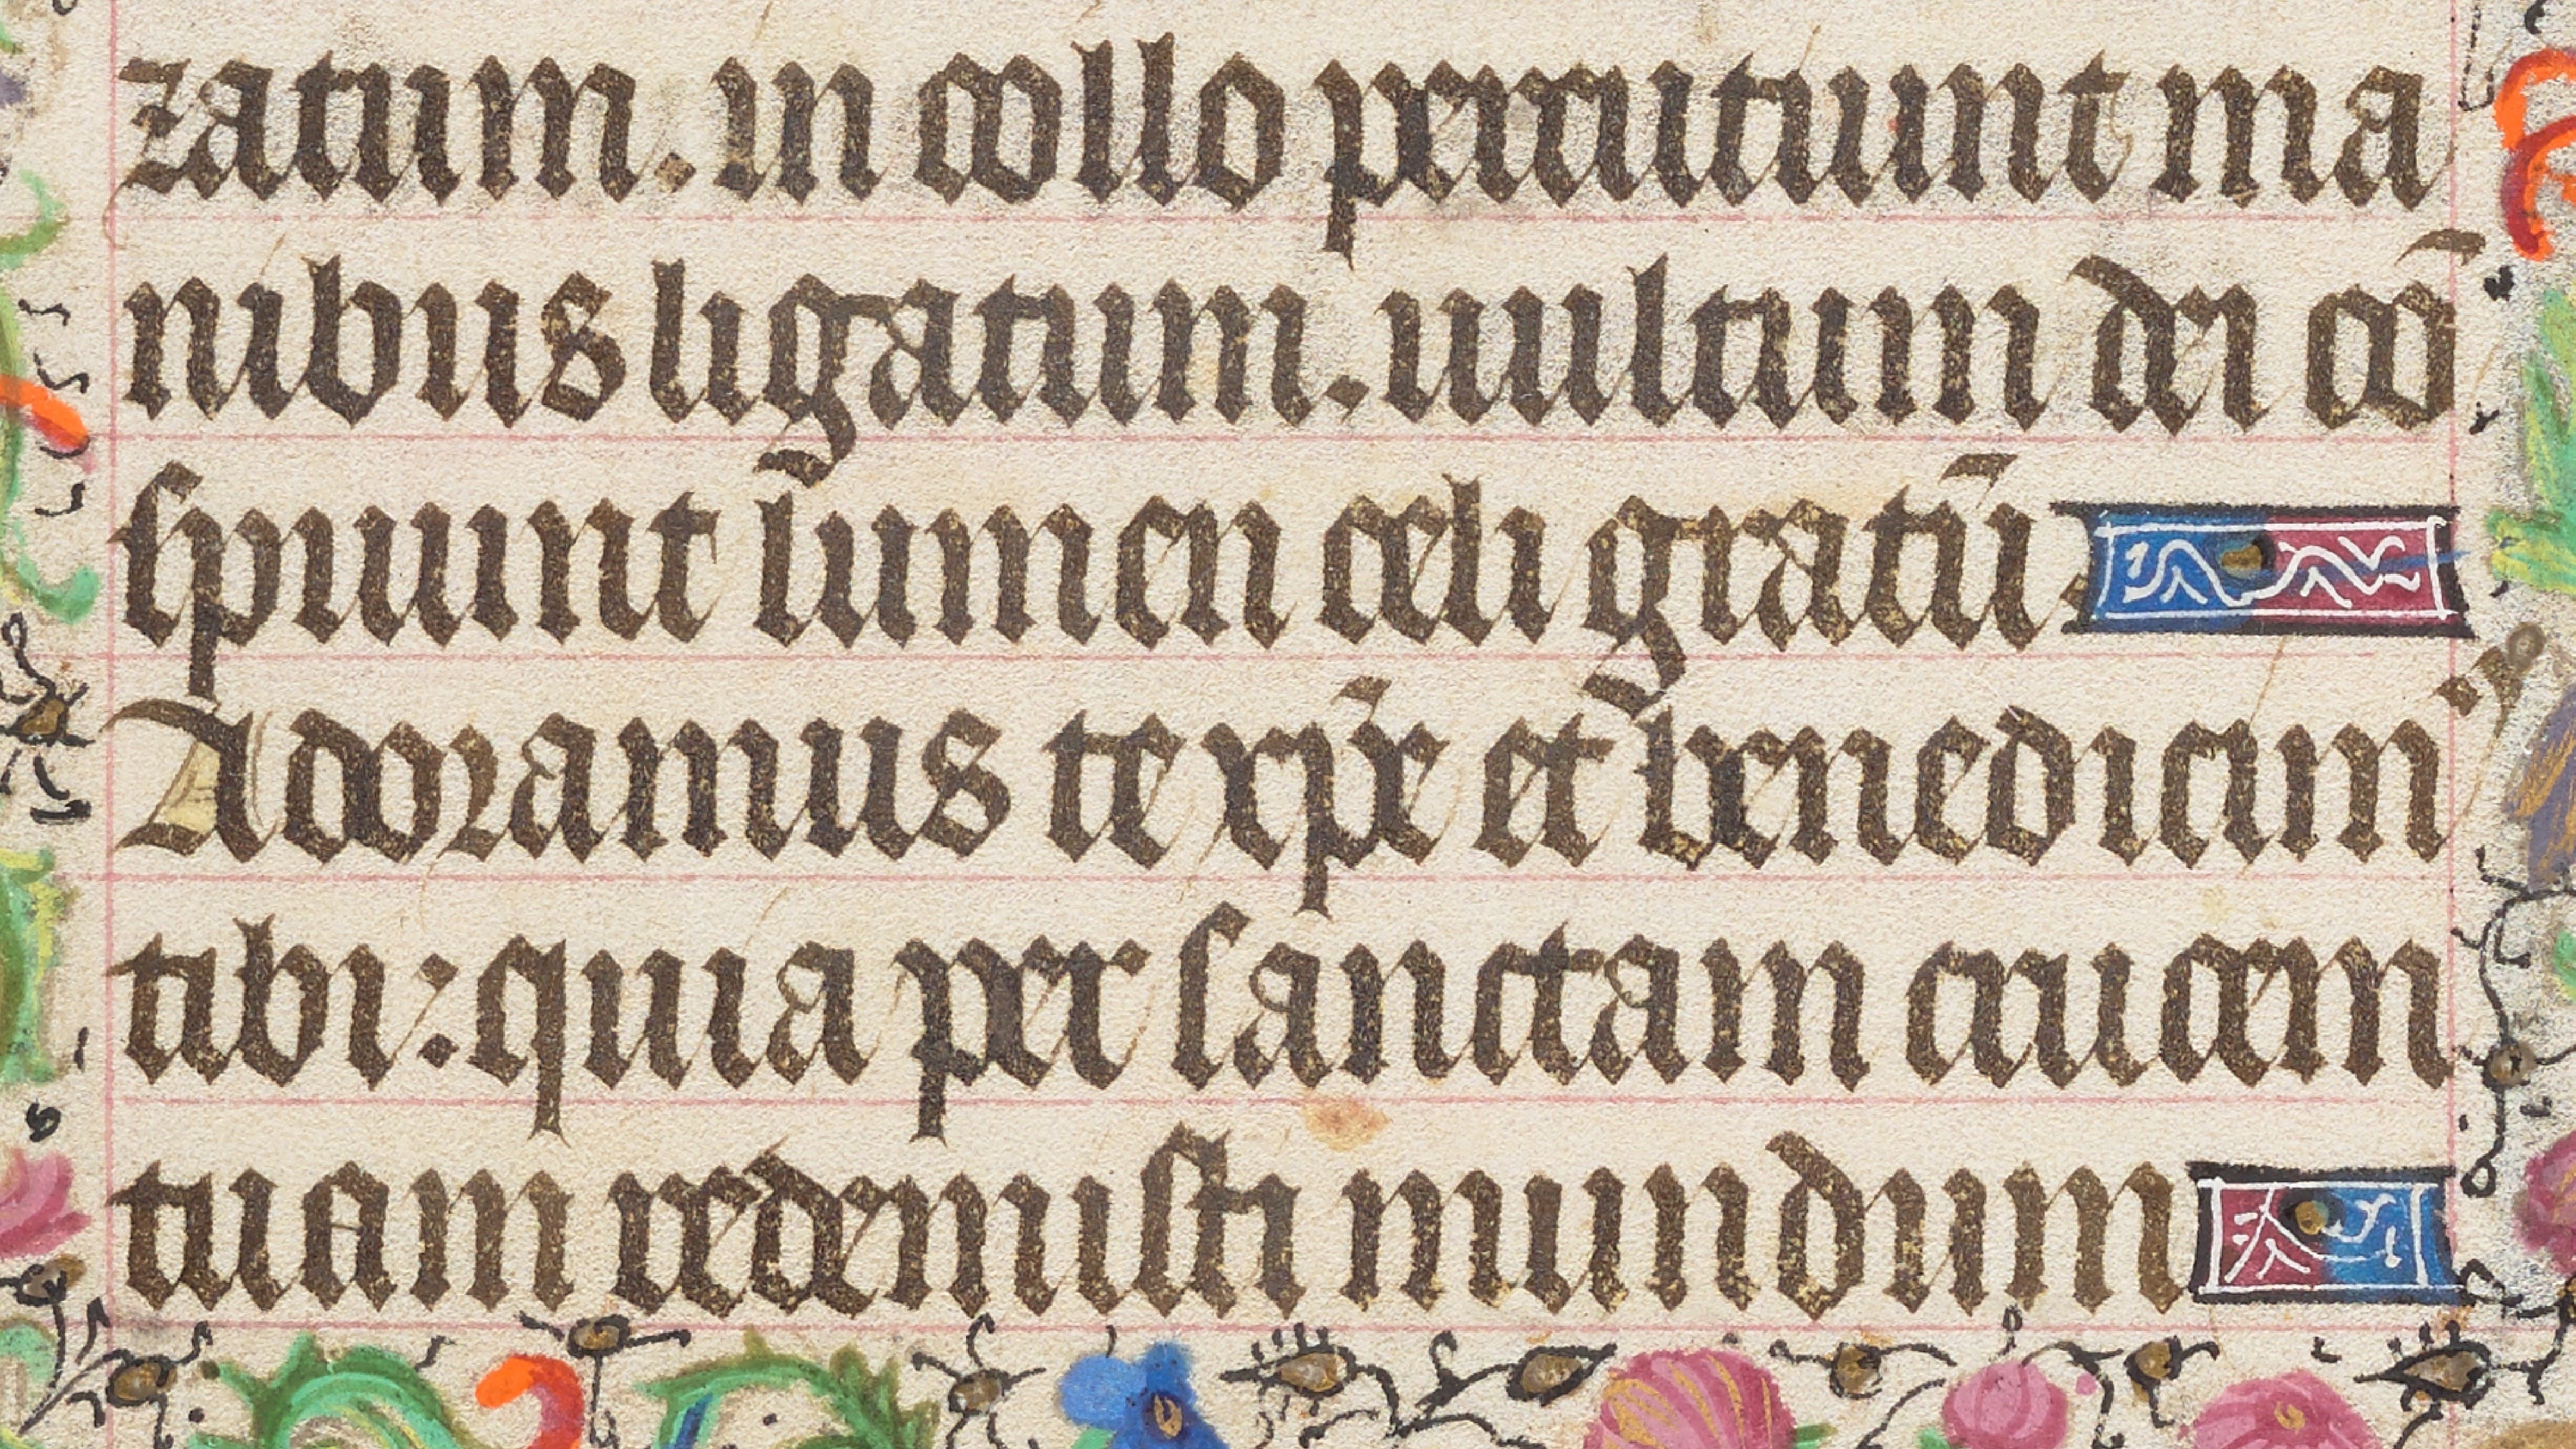 zatum. in collo percutiunt ma
nibus ligatum. uultum dei cō
spuunt lumen celi gratū.
Adoramus te xp̄e et benedicimꝰ
tibi: quia per sanctam crucem
tuam redemisti mundum